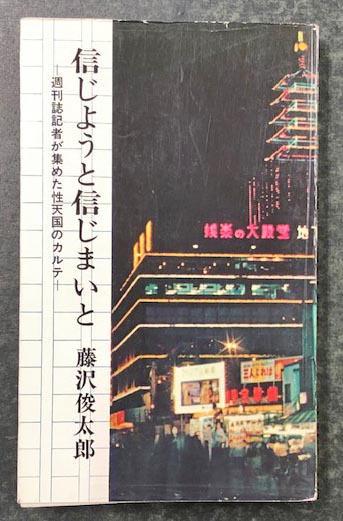 信じようと信じまいと
―週刊誌記者が集めた性天国のカルテ―
藤沢俊太郎
娯楽の大殿堂
地下
三人よれば